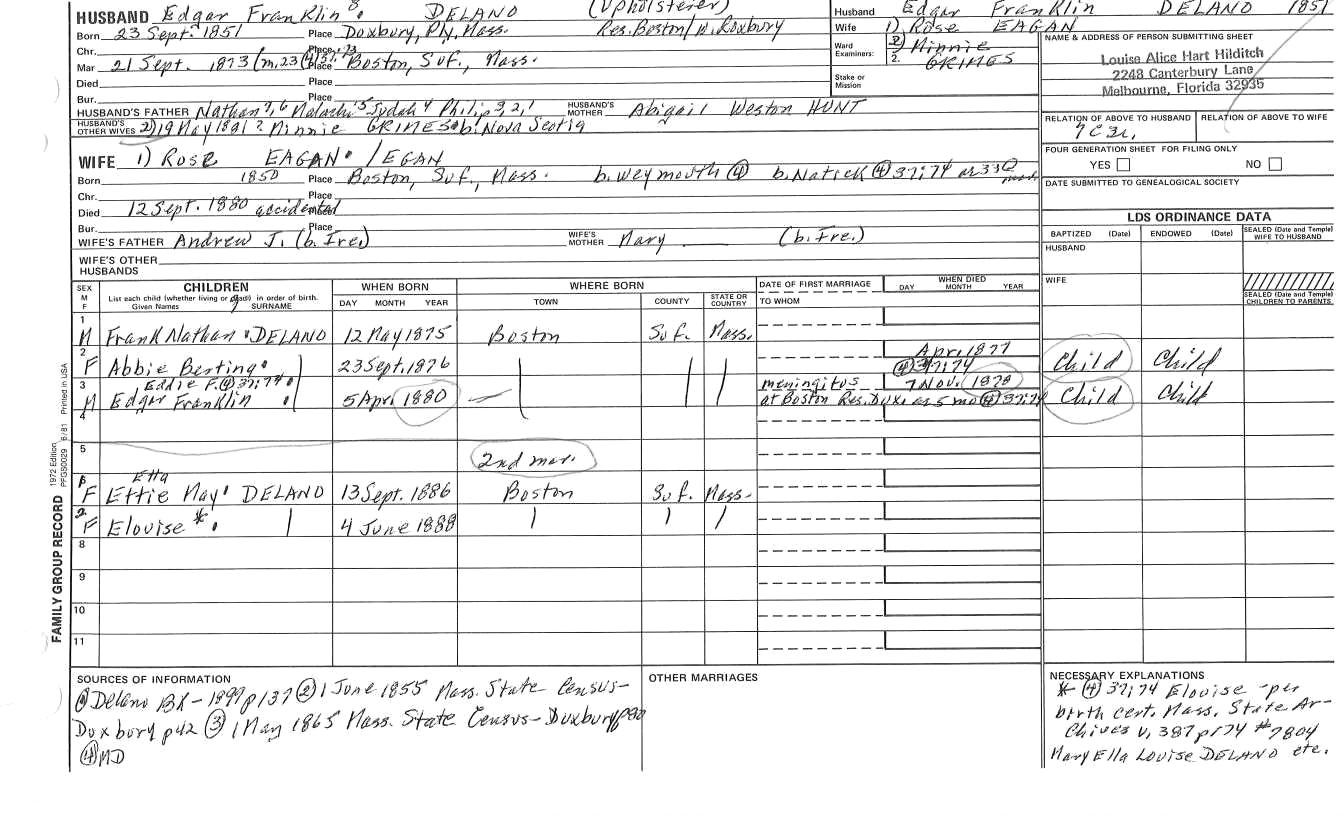 HUSBAND Edgar Franklin 8. DELANO (Upholsterer)
Born 23 Sept. 1851 Place Duxbury, Ply, Mass. Res. Boston/W. Roxbury
Chr. Place
Mar 21 Sept. 1873 (m. 23 (4) 37:73 Place Boston, Suf., Mass.
Died Place
Bur. Place
HUSBAND'S FATHER Nathan 7, 6 Malachi 5 Judah 4 Philip 3, 2, 1 HUSBAND'S MOTHER Abigail Weston HUNT
HUSBAND'S OTHER WIVES 2) 19 May 1881? Minnie GRIMES b. Nova Scotia
WIFE 1) Rose EAGAN. / EGAN
Born 1850 Place Boston, Suf., Mass. b. Weymouth (4) b. Natick (4) 37:74 or 33
Chr. Place
Died 12 Sept. 1880 accidental Place
Bur. Place
WIFE'S FATHER Andrew J. (b. Ire.) WIFE'S MOTHER Mary (b. Ire.)
WIFE'S OTHER HUSBANDS
Husband Edgar Franklin DELANO 1851
Wife 1) Rose EAGAN
Ward Examiners: 1. 2. 2) Minnie GRIMES
Stake or Mission
NAME & ADDRESS OF PERSON SUBMITTING SHEET
Louise Alice Hart Hilditch
2248 Canterbury Lane
Melbourne, Florida 32935
RELATION OF ABOVE TO HUSBAND RELATION OF ABOVE TO WIFE
7C3r.
FOUR GENERATION SHEET FOR FILING ONLY
YES NO
DATE SUBMITTED TO GENEALOGICAL SOCIETY
LDS ORDINANCE DATA
BAPTIZED (Date) ENDOWED (Date) SEALED (Date and Temple) WIFE TO HUSBAND
HUSBAND
WIFE
SEALED (Date and Temple) CHILDREN TO PARENTS
SEX M F CHILDREN WHEN BORN WHERE BORN DATE OF FIRST MARRIAGE WHEN DIED
List each child (whether living or dead) in order of birth. Given Names 9 SURNAME DAY MONTH YEAR TOWN COUNTY STATE OR COUNTRY TO WHOM DAY MONTH YEAR
1 M Frank Nathan . DELANO 12 May 1875 Boston Suf. Mass.
2 F Abbie Bertina . 23 Sept. 1876 Apr. 1877 (4) 37:74 Child Child
3 M Eddie F. (4) 37:74 . Edgar Franklin . 5 Apr 1880 meningitus 7 Nov. 1879 at Boston Res. Dux. as 5 mo (4) 37:74 Child Child
4
5 2nd mar.
F Etta Ettie May . DELANO 13 Sept. 1886 Boston Suf. Mass.
2. F Elouise * . 4 June 1888
8
9
10
11
SOURCES OF INFORMATION
(1) Delano BK - 1899 p 137 (2) 1 June 1855 Mass. State Census-
Duxbury p42 (3) 1 May 1865 Mass. State Census - Duxbury
(4) MD
OTHER MARRIAGES
NECESSARY EXPLANATIONS
* (4) 37:74 Elouise - per
birth cert. Mass. State Ar-
chives V. 387 p174 #7804
Mary Ella Louise DELANO etc.
FAMILY GROUP RECORD 1972 Edition PFGS0029 6/81 Printed in USA